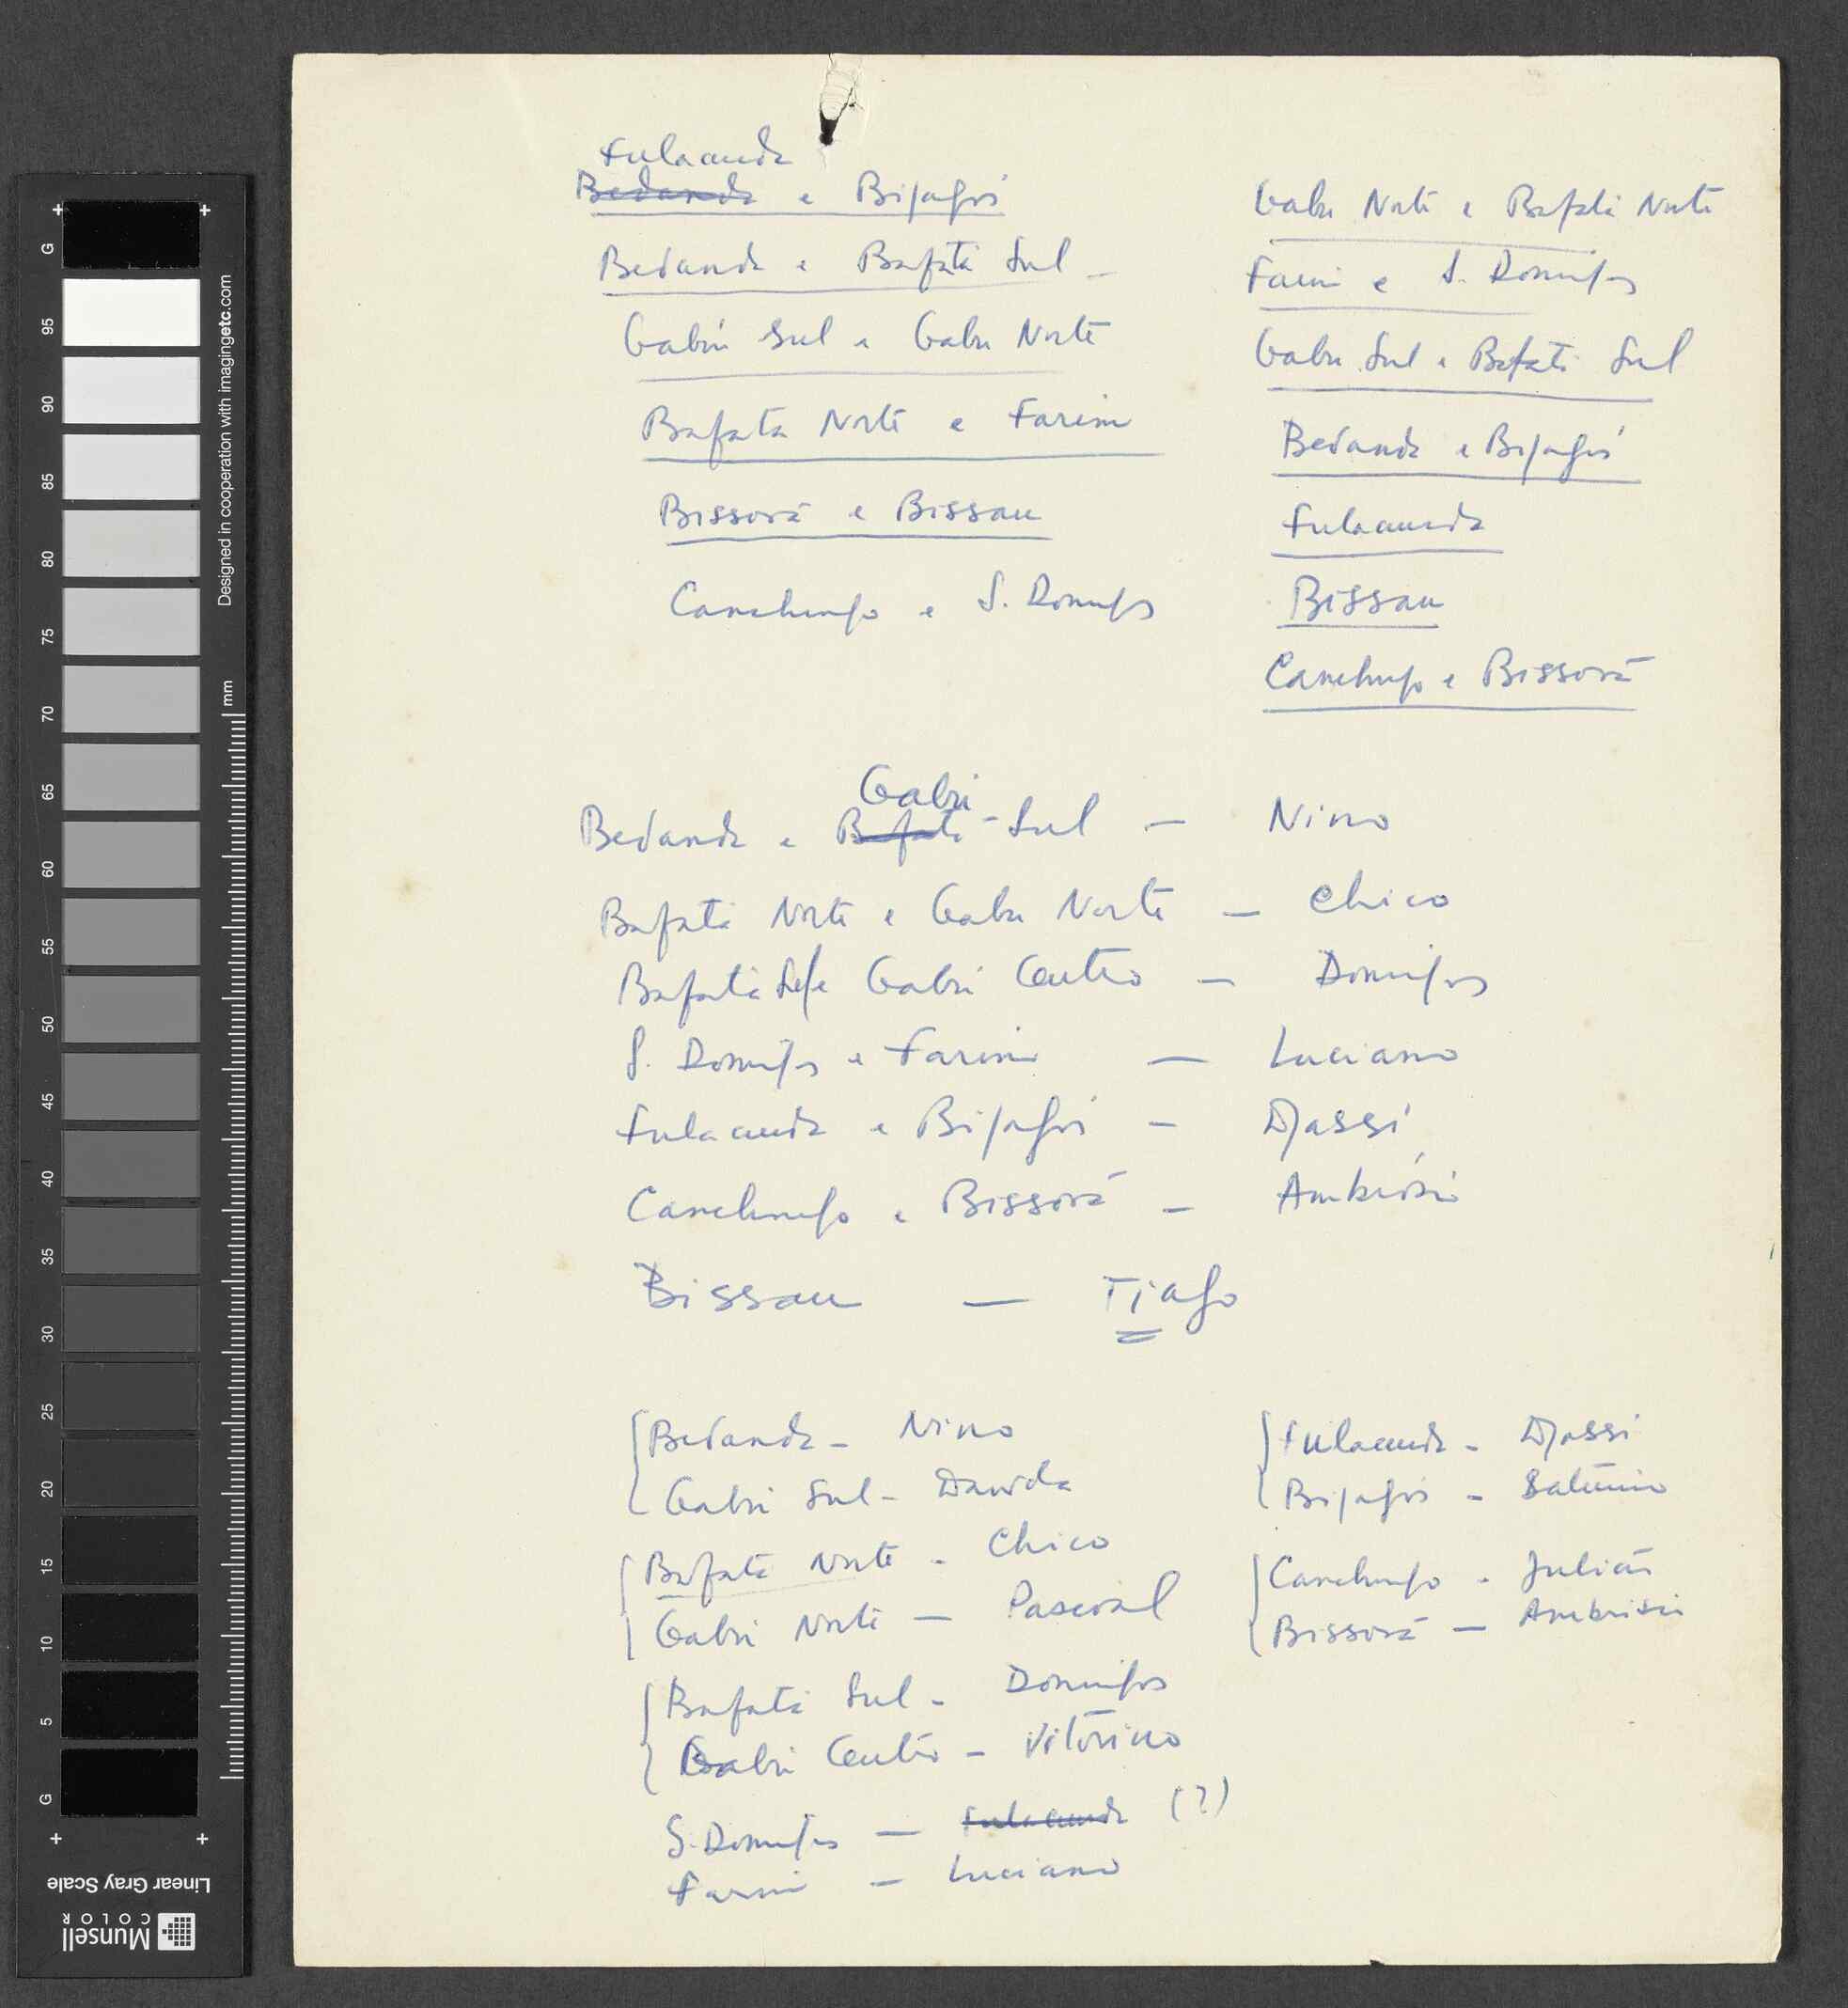 Fulacunda
~~Bedanda~~ e Bijagós
Bedanda e Bafatá Sul -
Gabú Sul e Gabu Norte
Bafatá Norte e Farim
Bissorã e Bissau
Canchungo e S. Domingos
Gabu Norte e Bafatá Norte
Farim e S. Domingos
Gabu Sul e Bafatá Sul
Bedanda e Bijagós
Fulacunda
Bissau
Canchungo e Bissorã
Gabú
Bedanda e ~~Bafatá~~ - Sul — Nino
Bafatá Norte e Gabu Norte — Chico
Bafatá Sul e Gabú Centro — Domingos
S. Domingos e Farim — Luciano
Fulacunda e Bijagós — Djassi
Canchungo e Bissorã — Ambrósio
Bissau — Tiago
Bedanda - Nino
Gabú Sul - Dauda
Bafatá Norte - Chico
Gabú Norte — Pascoal
Bafatá Sul - Domingos
Gabú Centro - Vitorino
S. Domingos — ~~Fulacunda~~ (?)
Farim — Luciano
Fulacunda - Djassi
Bijagós - Saturnino
Canchungo - Julião
Bissorã — Ambrósio
G 95 90 85 80 75 70 65 60 55 50 45 40 35 30 25 20 15 10 5 G
Designed in cooperation with imagingetc.com
mm
Linear Gray Scale
Munsell
COLOR